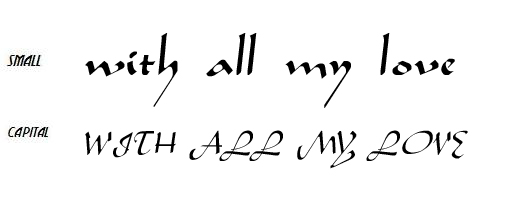 SMALL with all my love
CAPITAL WITH ALL MY LOVE